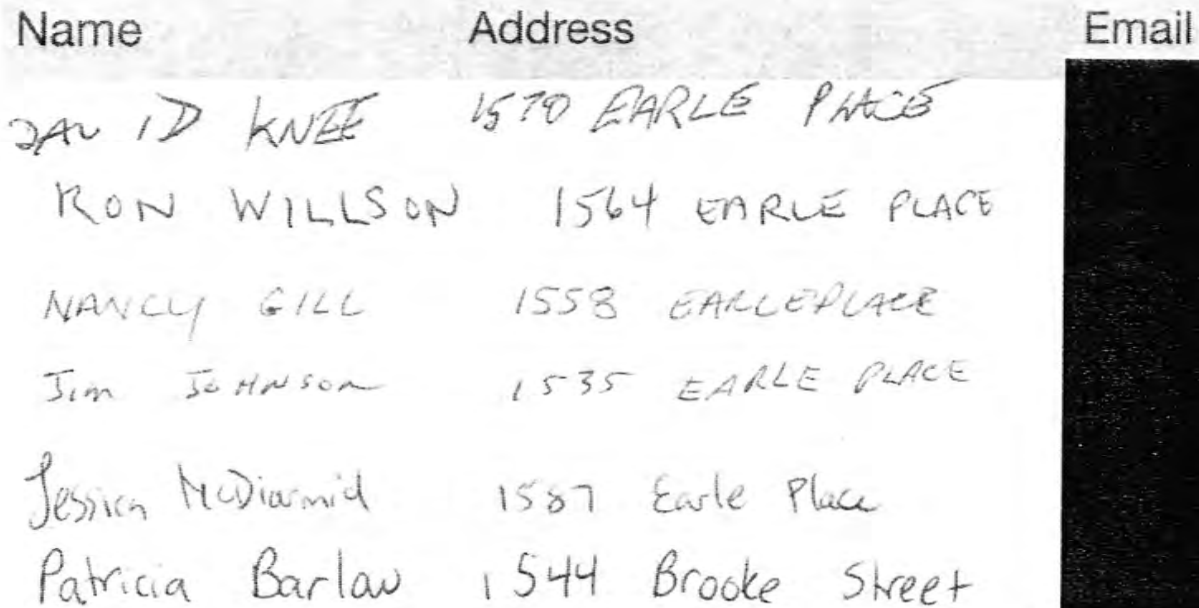 Name Address Email
DAVID KNEE 1570 EARLE PLACE
RON WILLSON 1564 EARLE PLACE
NANCY GILL 1558 EARLE PLACE
Jim JOHNSON 1535 EARLE PLACE
Jessica McDiarmid 1587 Earle Place
Patricia Barlow 1544 Brooke Street